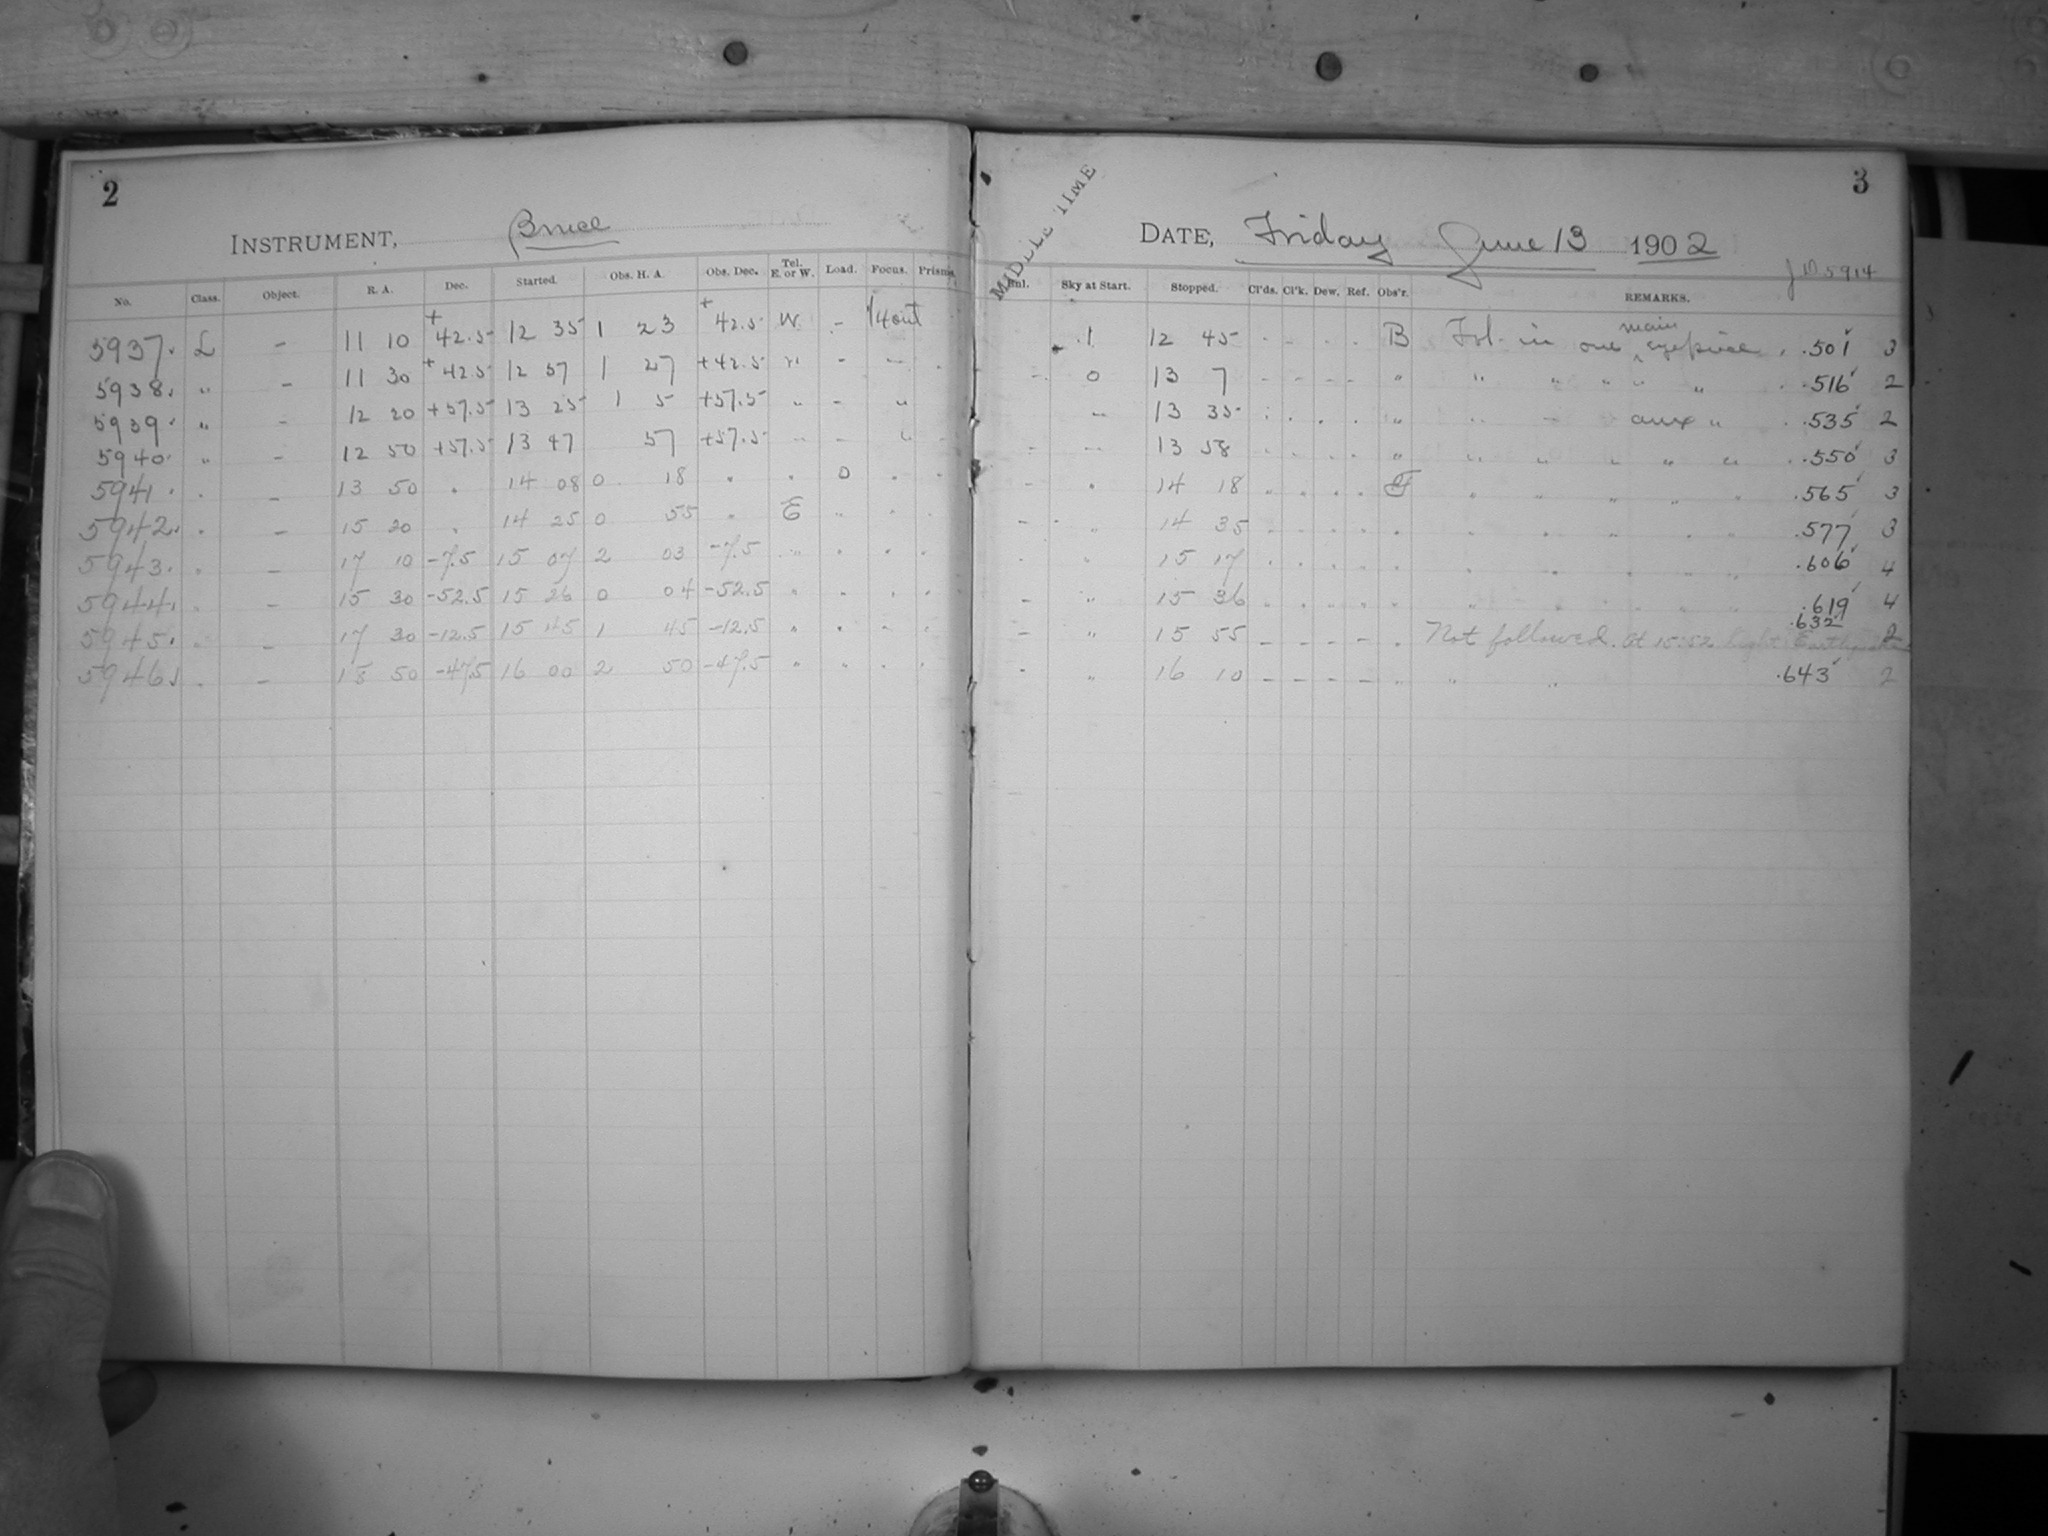 2
INSTRUMENT, Bruce
No. Class. Object. R. A. Dec. Started. Obs. H. A. Obs. Dec. Tel. E. or W. Load. Focus. Prisms.
5937. L - 11 10 +42.5 12 35 1 23 +42.5 W - 1/4 out
5938. " - 11 30 +42.5 12 57 1 27 +42.5 " - -
5939. " - 12 20 +57.5 13 25 1 5 +57.5 " - "
5940. " - 12 50 +57.5 13 47 57 +57.5 " - "
5941. " - 13 50 " 14 08 0 18 " " 0 " "
5942. " - 15 20 " 14 25 0 55 " E " " "
5943. " - 17 10 -7.5 15 07 2 03 -7.5 " " " "
5944. " - 15 30 -52.5 15 26 0 04 -52.5 " " " "
5945. " - 17 30 -12.5 15 45 1 45 -12.5 " " " "
5946. " - 18 50 -47.5 16 00 2 50 -47.5 " " " "
3
MIDDLE TIME
DATE, Friday June 13 1902
JD 5914
Enl. Sky at Start. Stopped. Cl'ds. Cl'k. Dew. Ref. Obs'r. REMARKS.
.1 12 45 - - - - B Fol. in one main eyepiece. .501 3
- 0 13 7 - - - - " " " " " " .516 2
" 13 35 - - - - " " - aux " .535 2
- " 13 58 - - - - " " " " " " .550 3
- " 14 18 " " " " F " " " " " .565 3
- " 14 35 " " " " " " " " " " .577 3
" 15 17 " " " " " " " " " " .606 4
- " 15 36 " " " " " " " " " " .619 4
- " 15 55 - - - - " Not followed. At 15:52 light Earthquake .632 2
- " 16 10 - - - - " " " .643 2